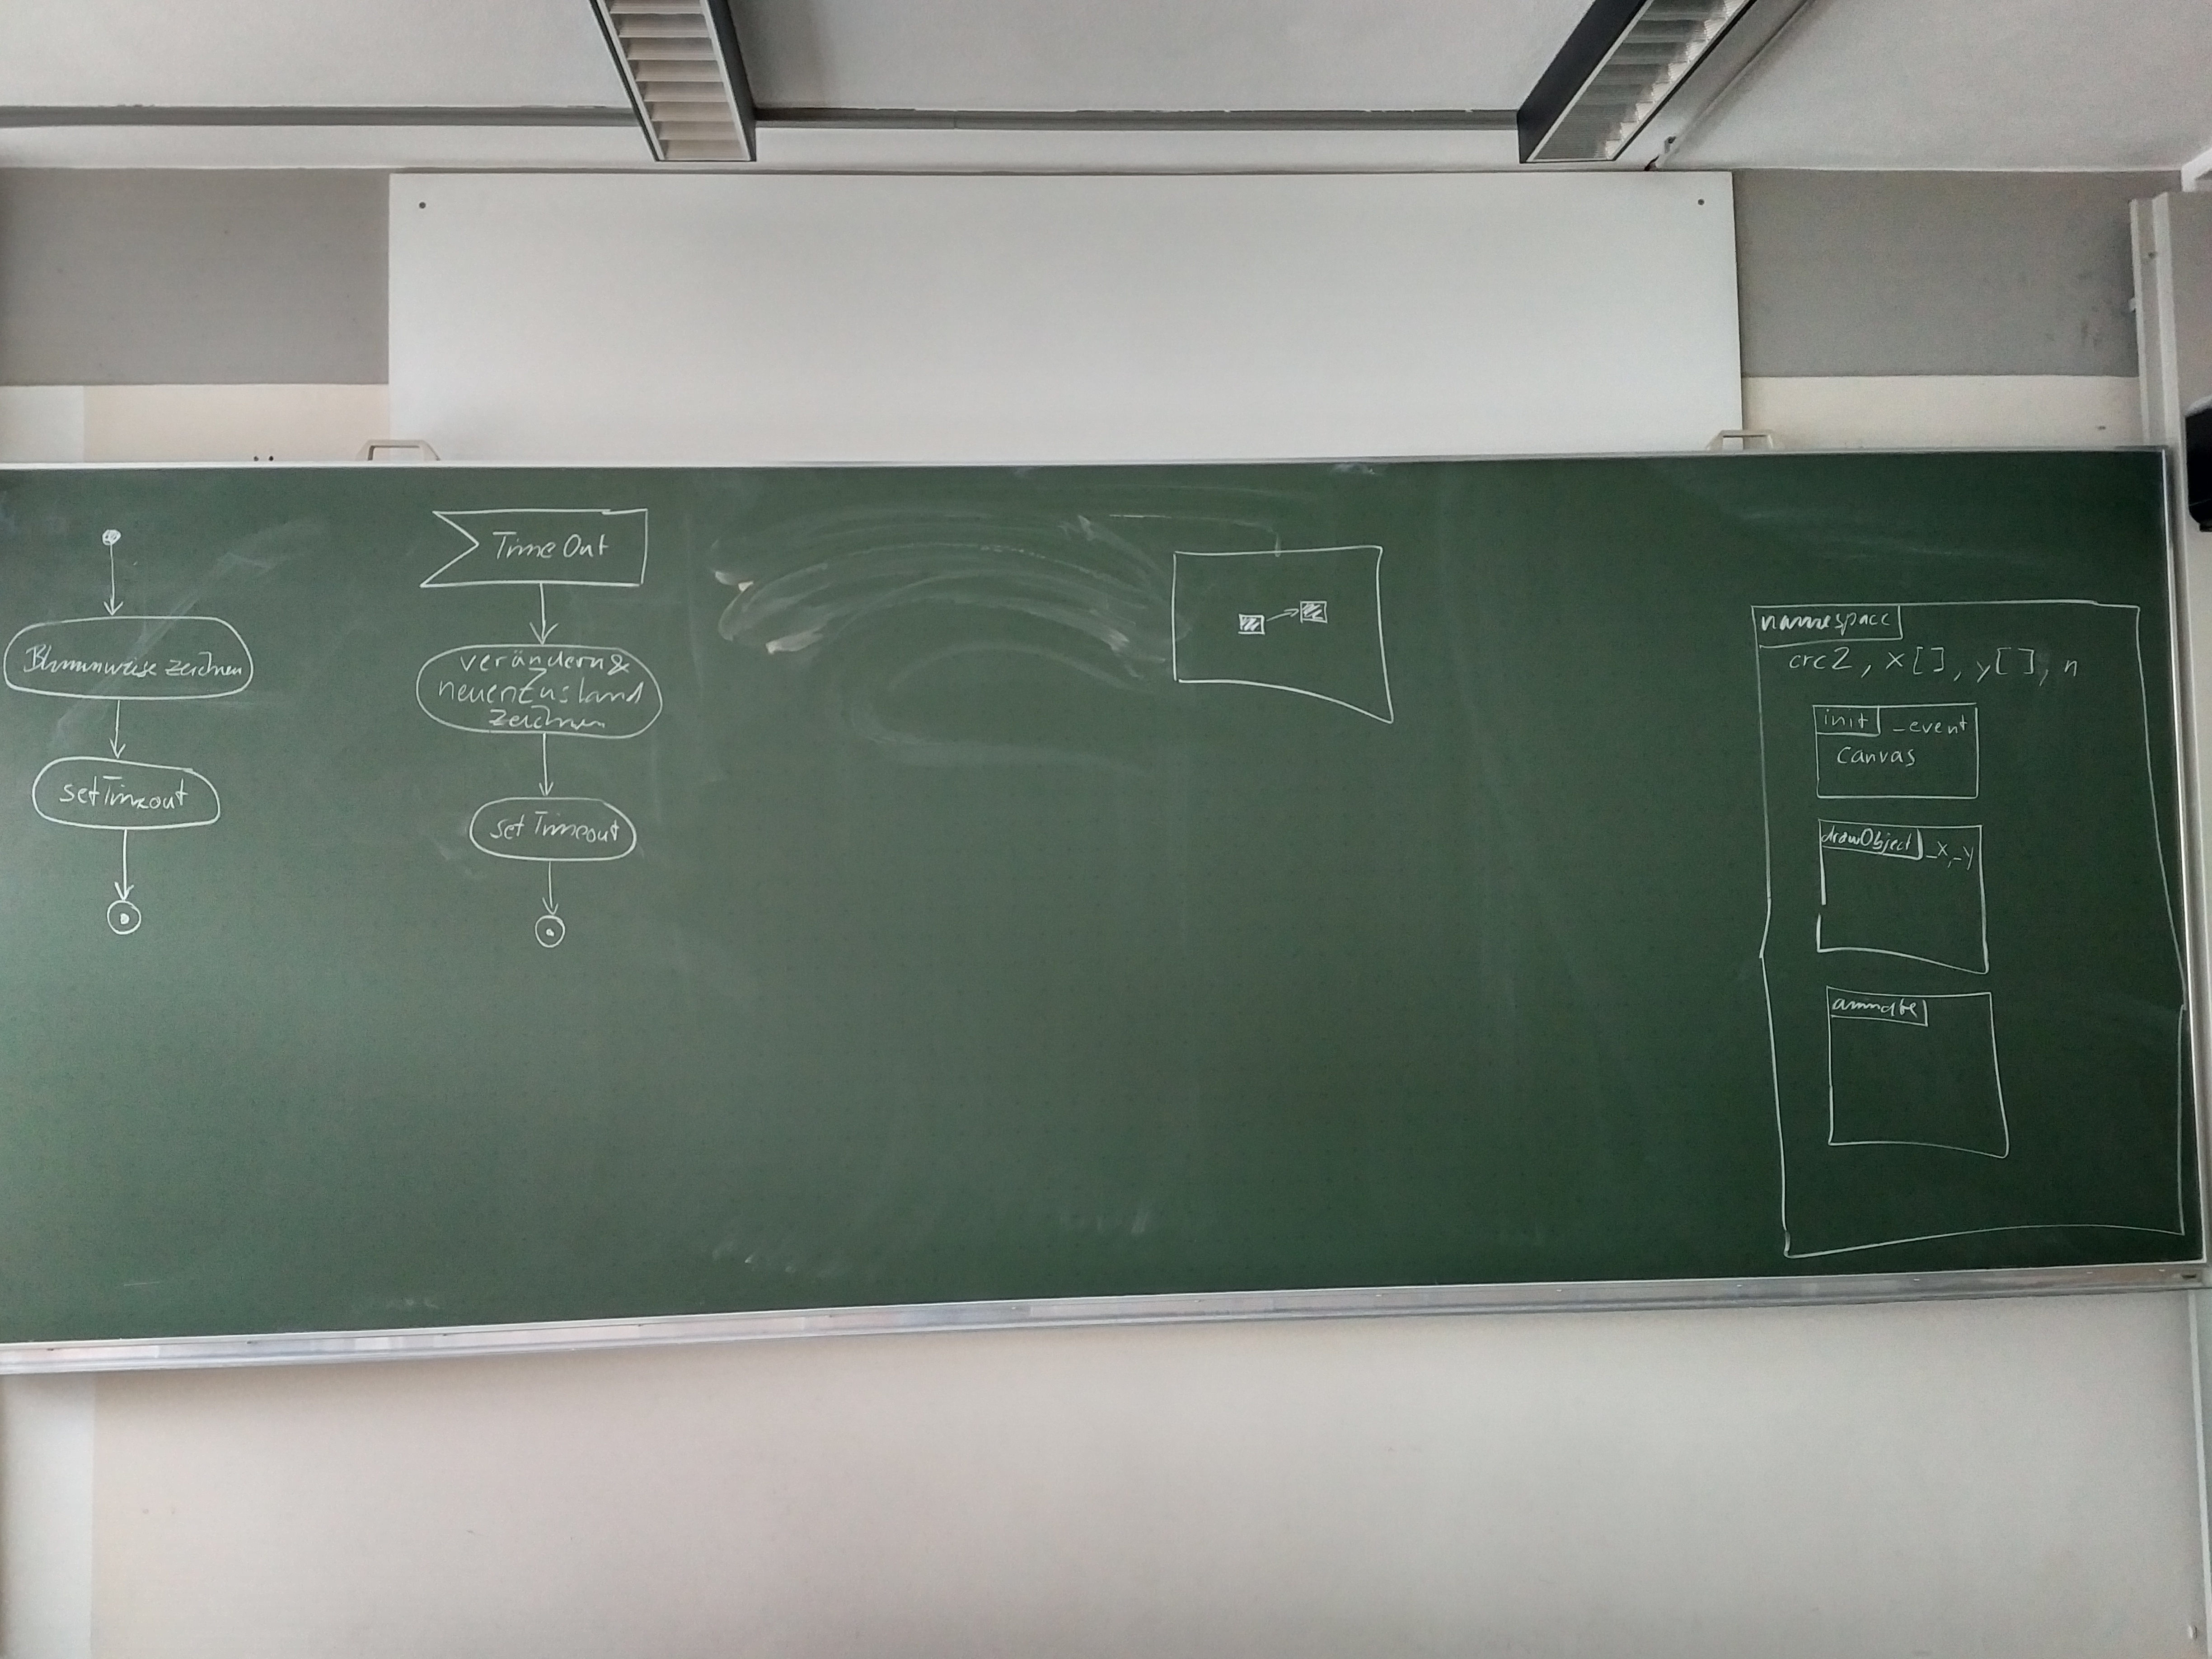 Blumenwiese zeichnen
setTimeout
TimeOut
verändern &
neuen Zustand
zeichnen
setTimeout
namespace
crc2, x[], y[], n
init _event
canvas
drawObject _x, _y
animate